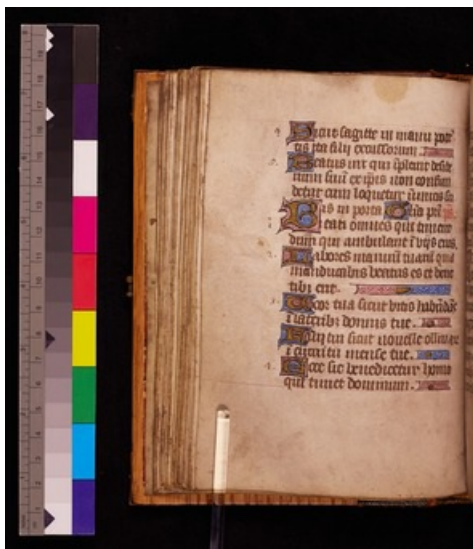 Sicut sagitte in manu pote
tis ita filii excussorum
Beatus vir qui īpleuit deside
rium suū ex ipīs non confun
detur cum loquetur inimicis su
is in porta Gła pri
Beati omnes qui timent
dnm qui ambulant ī vijs eius.
Labores manuū tuarū quia
manducabis beatus es et bene
tibi erit.
Uxor tua sicut vitis habūdās
ī laterib domus tue.
Filii tui sicut nouelle oliuarū
ī circuitu mense tue.
Ecce sic benedicetur homo
qui timet dominum.